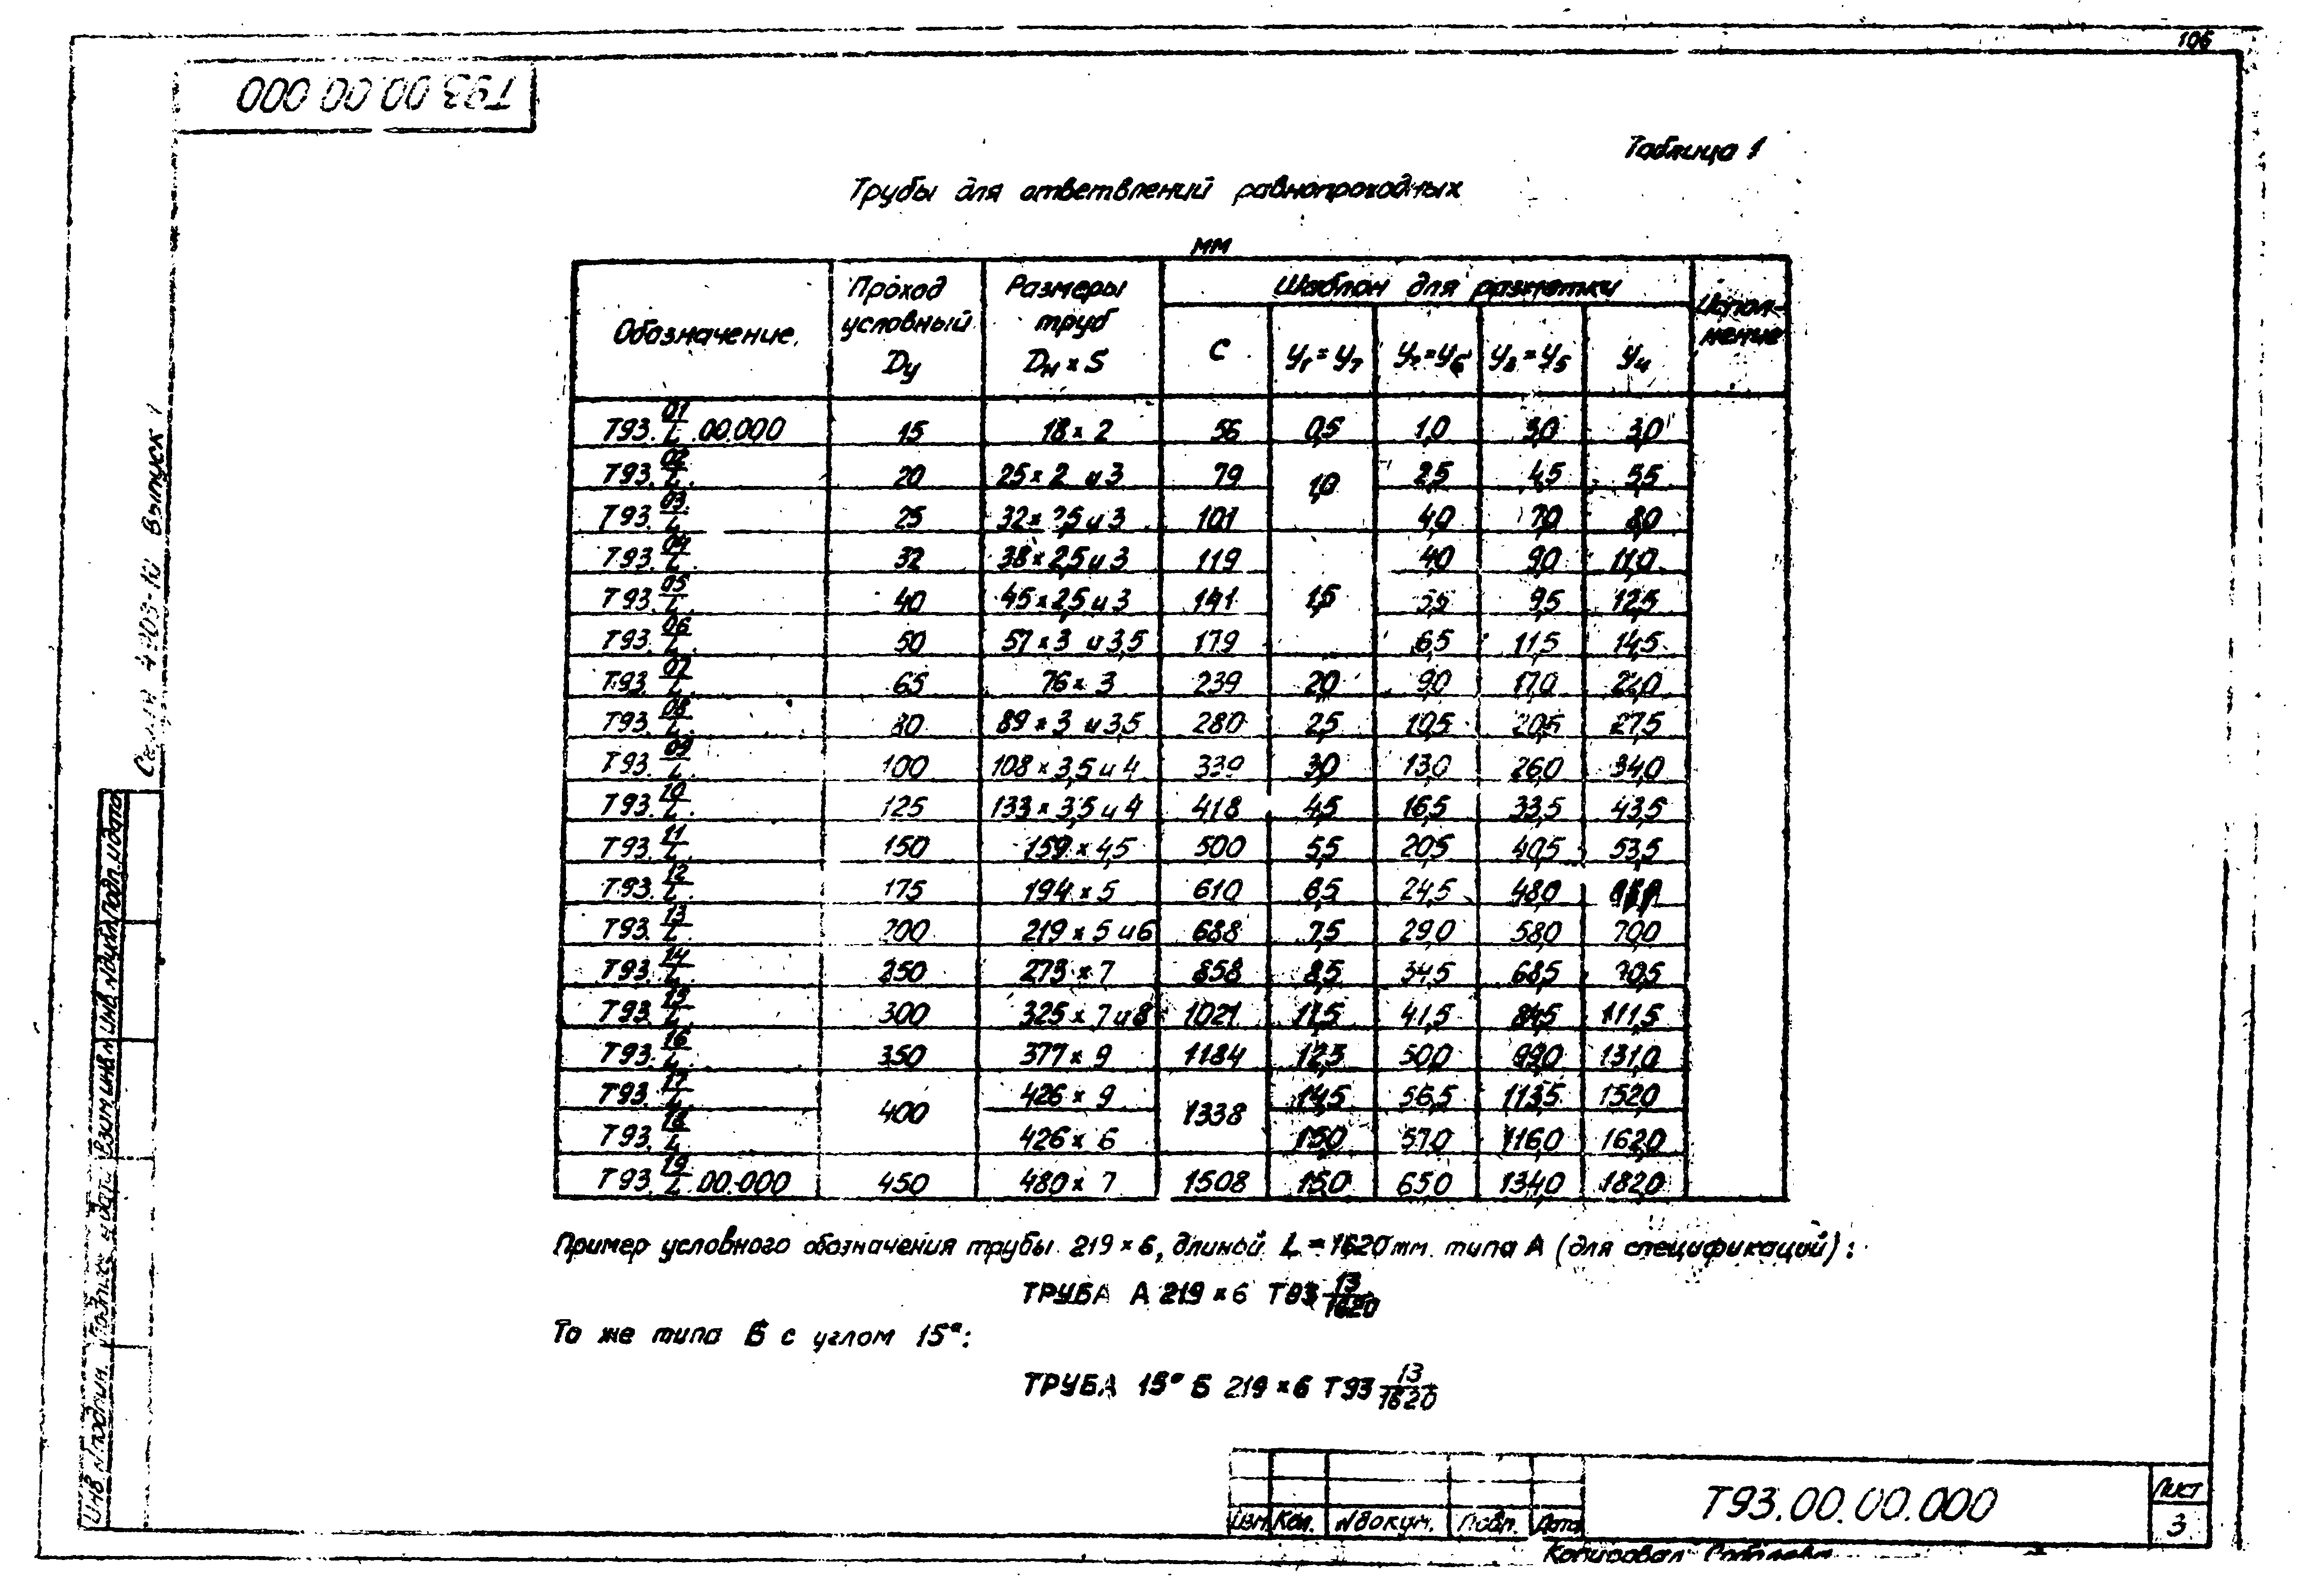 106
Т93 00.00 000
Таблица 1
Трубы для ответвлений равнопроходных
мм
Обозначение. Проход условный Dу Размеры труб Dн × S Шаблон для разметки Испол-нение
C У1 = У7 У2 = У6 У3 = У5 У4
Т93.01/L.00.000 15 18 × 2 56 0,5 1,0 3,0 3,0
Т93.02/L. 20 25 × 2 и 3 79 1,0 2,5 4,5 5,5
Т93.03/L. 25 32 × 2,5 и 3 101 4,0 7,0 8,0
Т93.04/L. 32 38 × 2,5 и 3 119 4,0 9,0 11,0
Т93.05/L. 40 45 × 2,5 и 3 141 1,5 5,5 9,5 12,5
Т93.06/L. 50 57 × 3 и 3,5 179 6,5 11,5 14,5
Т93.07/L. 65 76 × 3 239 2,0 9,0 17,0 22,0
Т93.08/L. 80 89 × 3 и 3,5 280 2,5 10,5 20,5 27,5
Т93.09/L. 100 108 × 3,5 и 4 339 3,0 13,0 26,0 34,0
Т93.10/L. 125 133 × 3,5 и 4 418 4,5 16,5 33,5 43,5
Т93.11/L. 150 159 × 4,5 500 5,5 20,5 40,5 53,5
Т93.12/L. 175 194 × 5 610 6,5 24,5 48,0
Т93.13/L. 200 219 × 5 и 6 688 7,5 29,0 58,0 70,0
Т93.14/L. 250 273 × 7 858 8,5 34,5 68,5
Т93.15/L. 300 325 × 7 и 8 1021 11,5 41,5 84,5 111,5
Т93.16/L. 350 377 × 9 1184 12,5 50,0 99,0 131,0
Т93.17/L. 400 426 × 9 1338 14,5 56,5 113,5 152,0
Т93.18/L. 426 × 6 15,0 57,0 116,0 162,0
Т93.19/L.00.000 450 480 × 7 1508 15,0 65,0 134,0 182,0
Пример условного обозначения трубы 219 × 6, длиной L = 1620 мм типа А (для спецификаций):
ТРУБА А 219 × 6 Т93 13/1620
То же типа Б с углом 15°:
ТРУБА 15° Б 219 × 6 Т93 13/1620
Серия 4.903-10 Выпуск 1
Инв. N подлин. Подпись и дат. Взам.инв.N Инв.N дубл. Подп.и дата
Изм. Кол. N докум. Подп. Дата
Т93.00.00.000
Лист
3
Копировал: